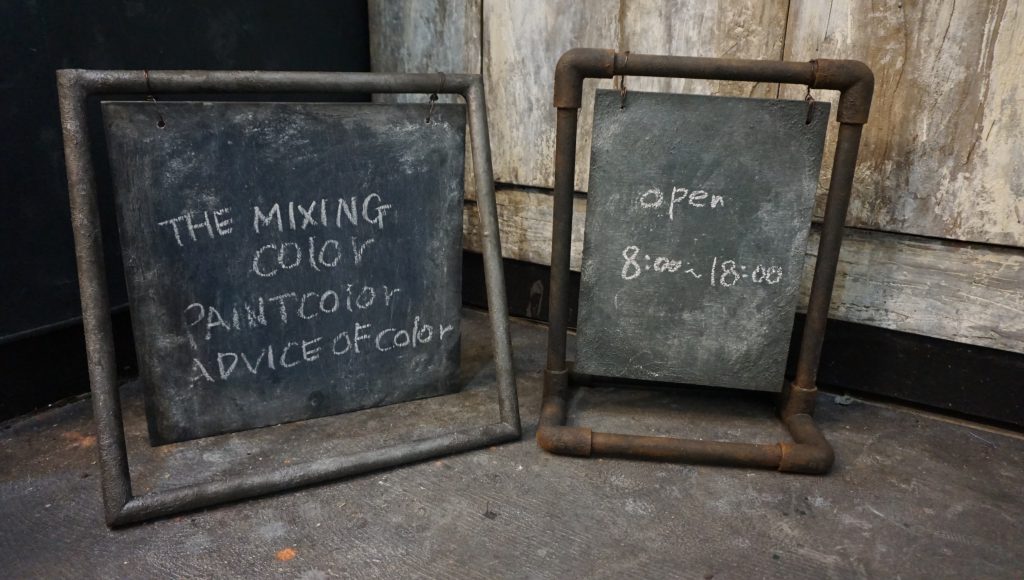 THE MIXING
COLOR
PAINTCOlOr
ADVICE OF COlOr
open
8:00~18:00